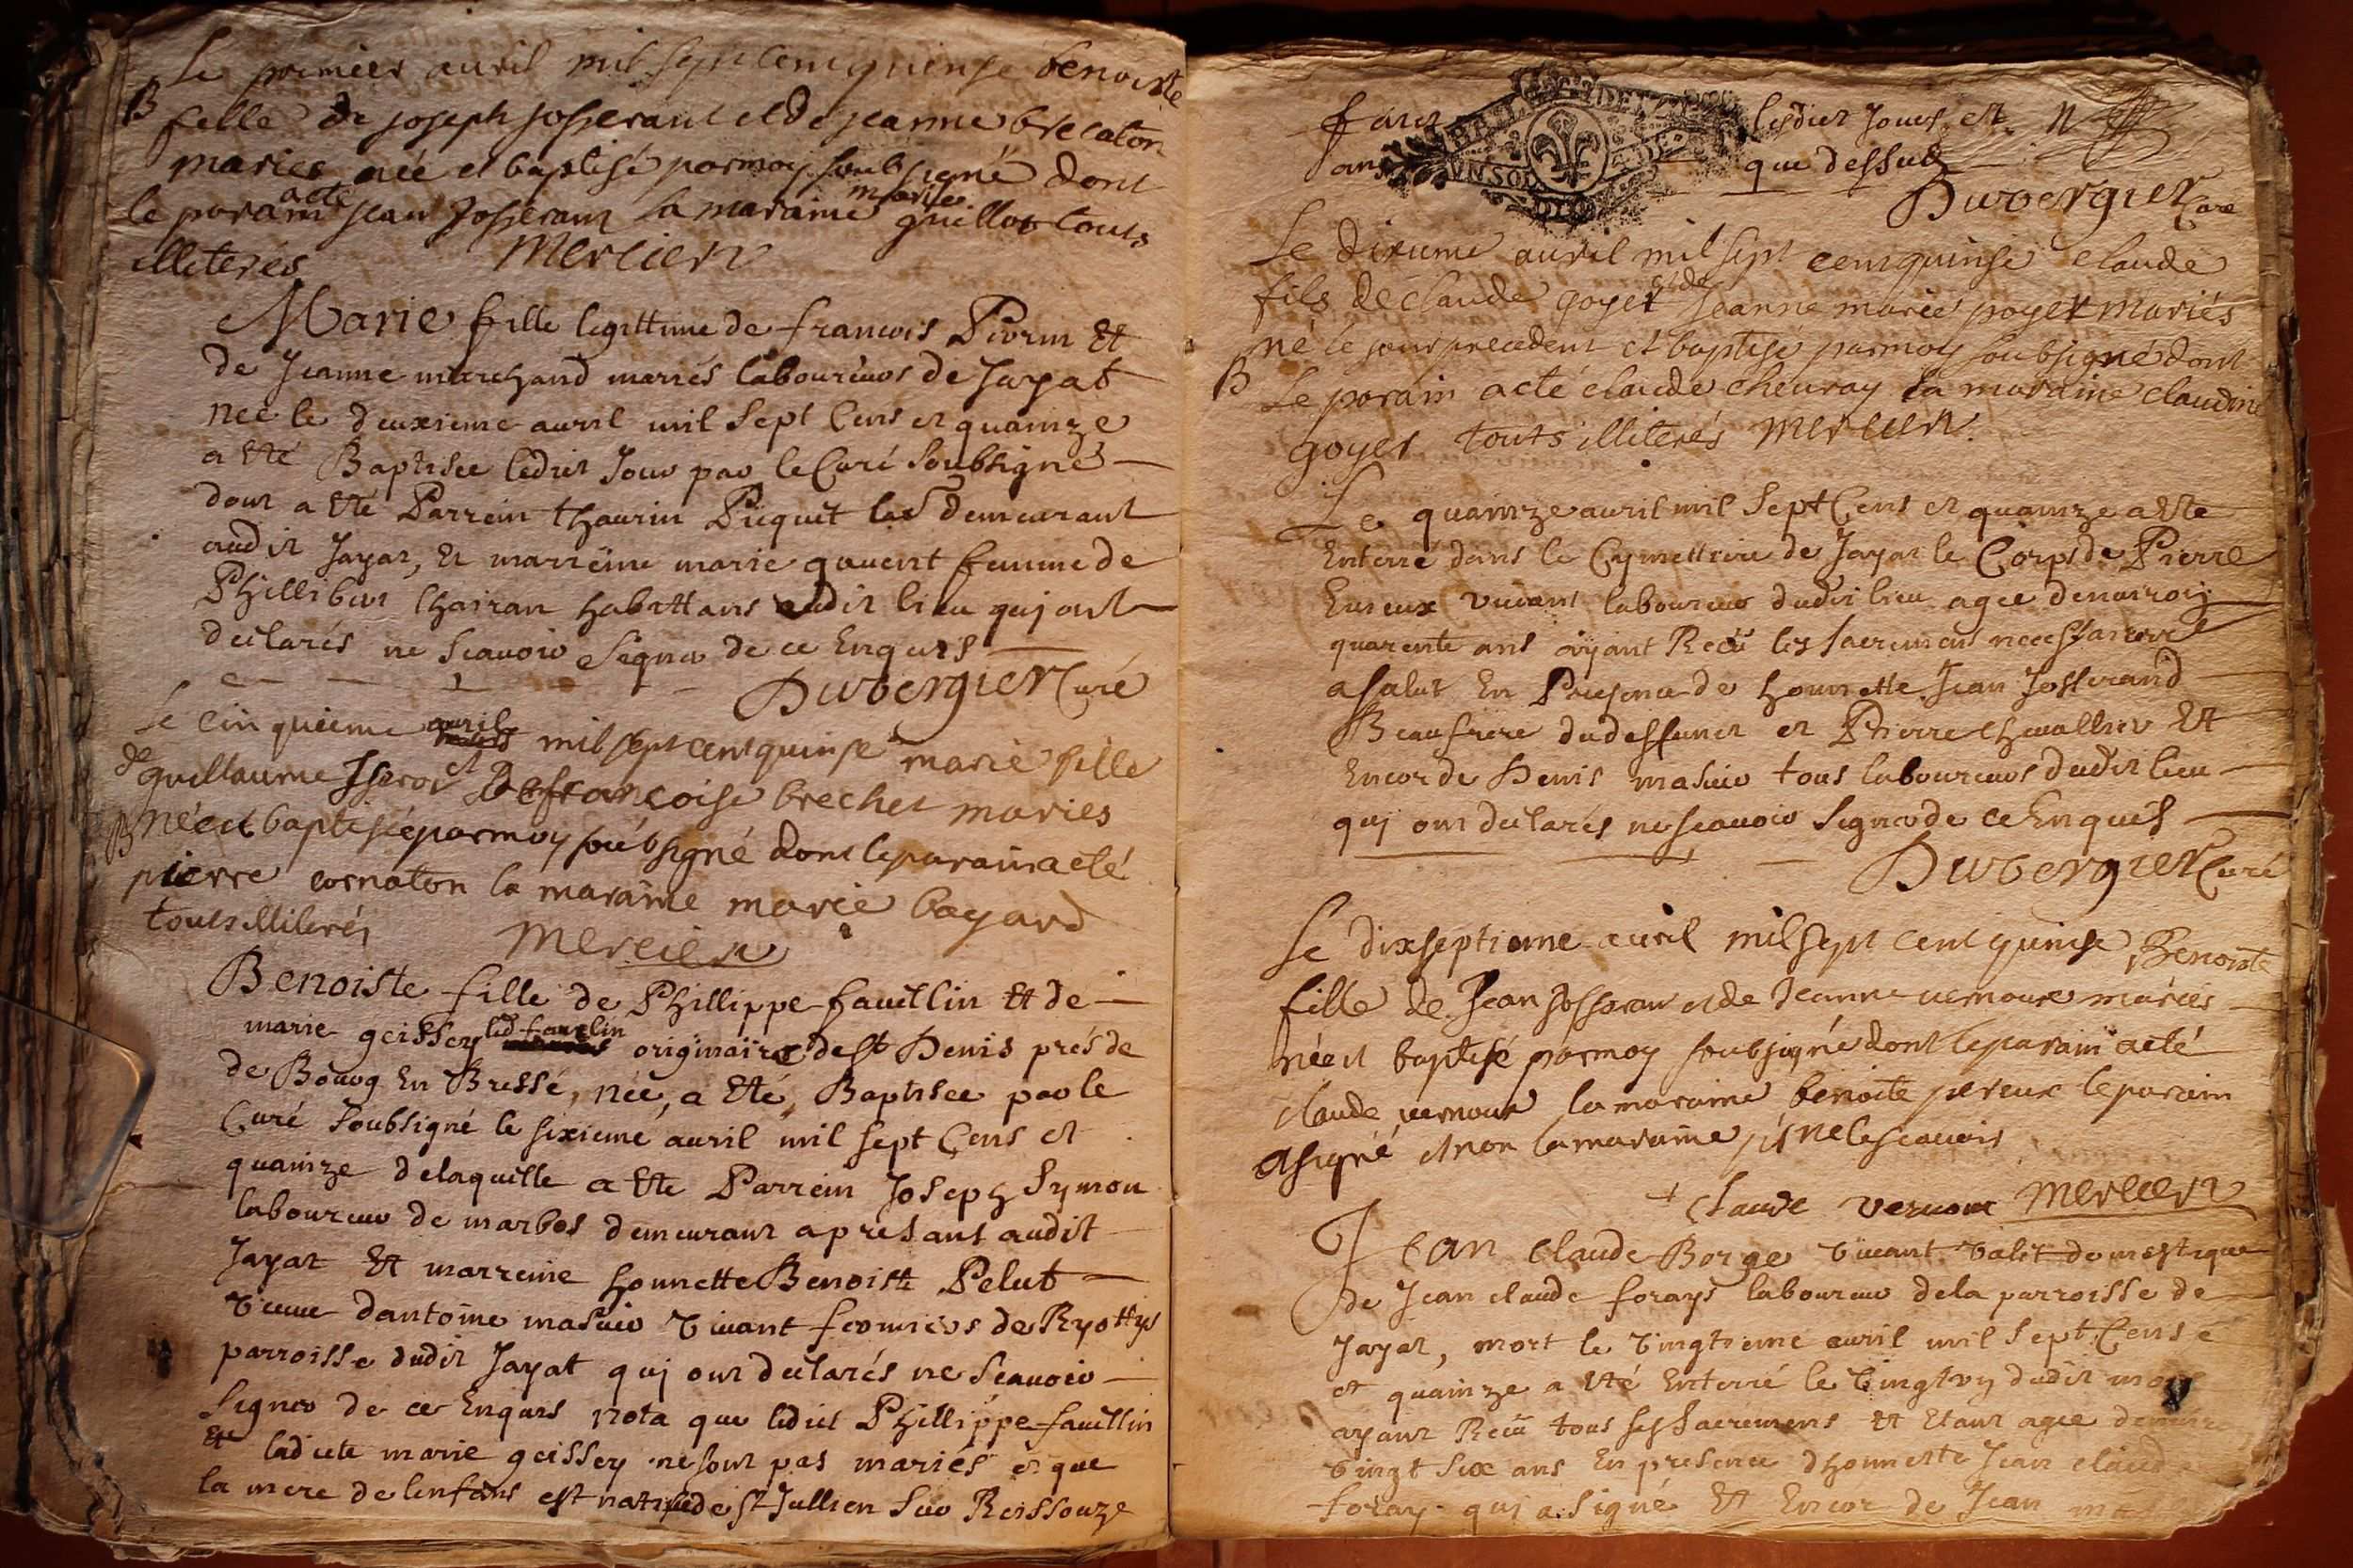 Le premier avril mil sept cent quinse benoiste
B fille de joseph josserant et de jeanne brecaton
mariés née et baptisé par moy soubsigné dont
le parain acté jean josserant la maraine marie guillot touts
illiterés Mercier
Marie fille legittime de francois Pivrin Et
de Jeanne marchand mariés laboureurs de Jayat
née le deuxieme avril mil Sept Cens et quainze
a Eté Baptisee ledict Jour par le Curé Soubsigné
dont a Eté Parrein thaurin Piquit demeurant
audit Jayat, Et marreine marie gauent femme de
Phillibert Chairan habittans audit lieu qui ont
declarés ne Scauoir Signer de ce Enquis
Duvergier Curé
Le cinquieme avril mil sept cent quinse marie fille
de guillaume et De francoise brechet maries
B née et baptisée par moy soubsigné dont le parain a eté
pierre cornaton la maraine marie bayard
touts illiterés Mercier
Benoiste fille de Phillippe favillin Et de
marie geissey led favelin originaire de st Denis prés de
de Bourg En Bresse, née, a Eté, Baptisee par le
Curé Soubsigné le sixieme avril mil sept Cens et
quainze de laquelle a Ete Parrein Joseph Symon
laboureur de marbos demeurant apresant audit
Jayat Et marreine honnette Benoiste Pelut
veuve dantoine masuir vivant fermiers de Ryottys
parroisse dudit Jayat qui ont declarés ne Scauoir
Signer de ce Enquis nota que ledict Phillippe favillin
Et ladicte marie geissey ne sont pas mariés et que
la mere de lenfans est natifve de St Jullien Sur Reissouze
faict lesdict Jours et
ans que dessus
UN SOL
Duvergier Curé
Le dixieme avril mil sept cent quinse claude
fils de claude goyet et de jeanne marie poyet mariés
né le jour precedent et baptisé par moy soubsigné dont
B Le parain acté claude cheuray la maraine claudine
goyet touts illiterés Mercier
Le quainze avril mil Sept Cens et quainze a Este
Enterré dans le Cymettiere de Jayat le Corps de Pierre
Eureux vivant laboureur dudit lieu agee denuiron
quarente ans ayant Receu les Sacremens necessaires
a salut En Presence de honnette Jean Josserand
Beaufrere du deffunct et Pierre Chevallier Et
Encor de Denis masuir tous laboureurs dudit lieu
qui ont declarés ne scauoir Signer de ce Enquis
Duvergier Curé
Le dixseptieme avril mil sept cent quinse Benoiste
fille de Jean Josseran et de Jeanne vernoux mariés
née et baptisé par moy soubsigné dont le parain a eté
claude vernoux la maraine benoite pereux le parain
a signé et non la maraine p ne le scauoir
+ Claude vernoux Mercier
Jean Claude Borge vivant valet domestique
de Jean claude forays laboureur de la parroisse de
Jayat, mort le vingtieme avril mil Sept Cens
et quainze a Eté Enterré le vingt un dudit mois
ayant Receu tous ses Sacremens Et Etant agee
vingt Six ans En presence dhonneste Jean claude
foray qui a Signé Et Encor de Jean